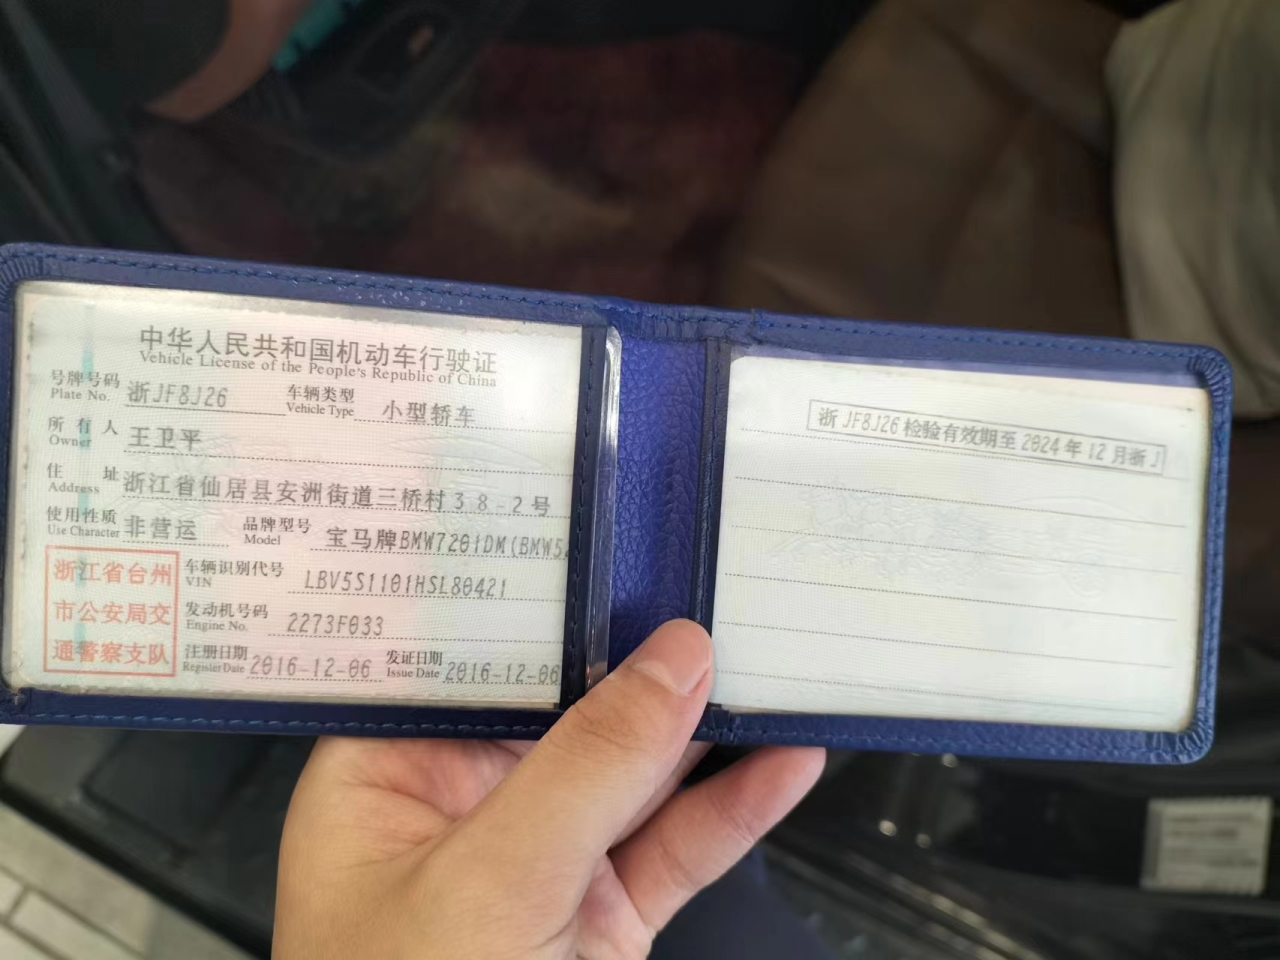 中华人民共和国机动车行驶证
Vehicle License of the People's Republic of China
号牌号码 浙JF8J26 车辆类型 小型轿车
Plate No. Vehicle Type
所有人 王卫平
Owner
住址 浙江省仙居县安洲街道三桥村38-2号
Address
使用性质 非营运 品牌型号 宝马牌BMW7201DM(BMW52
Use Character Model
浙江省台州
市公安局交
通警察支队
车辆识别代号 LBV5S1101HSL80421
VIN
发动机号码 2273F033
Engine No.
注册日期 2016-12-06 发证日期 2016-12-06
Register Date Issue Date
浙JF8J26检验有效期至2024年12月浙J